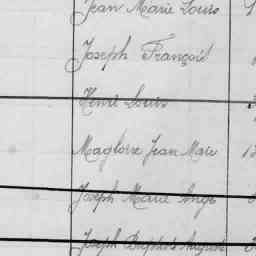 Jean Marie Louis
Joseph François
Henri Louis
Magloire Jean Marie
Joseph Marie Ange
Joseph Baptiste Auguste